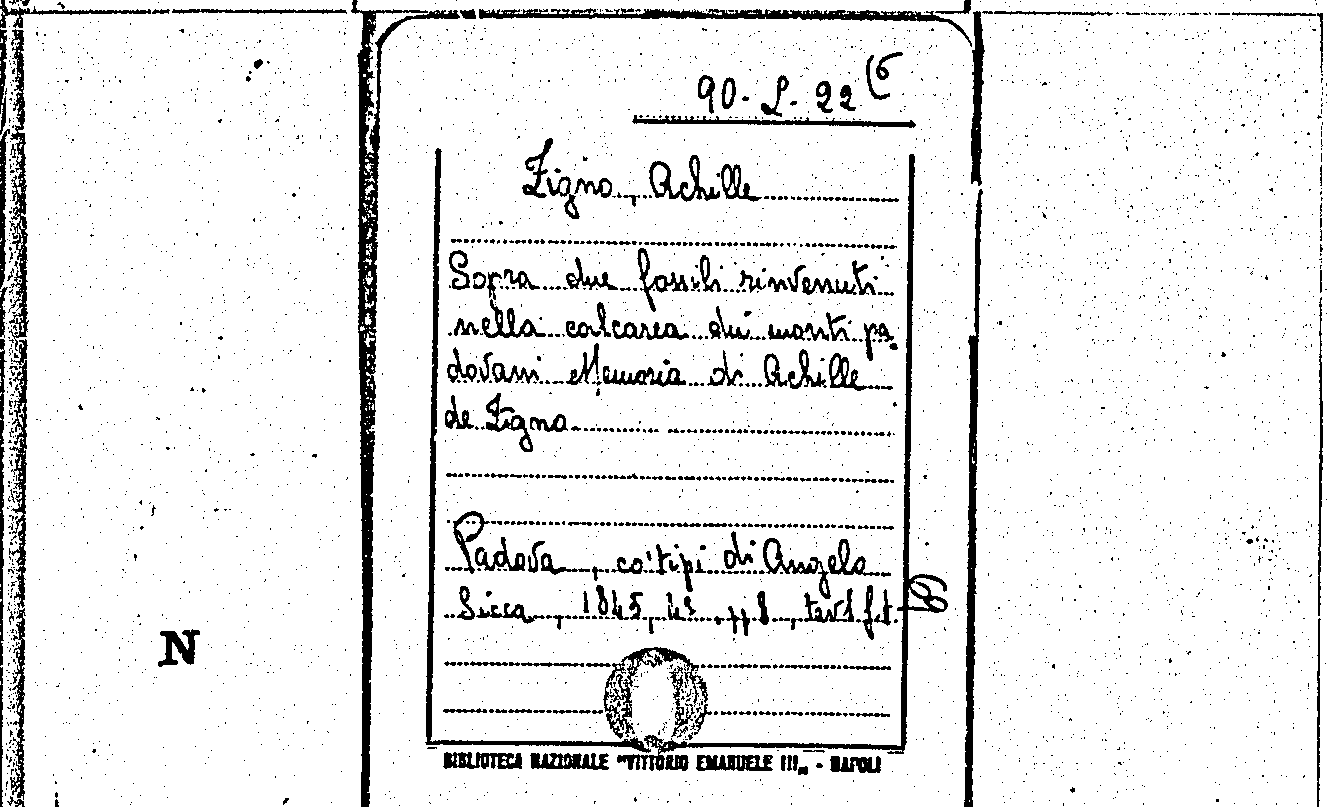 90. L. 22 (6
Zigno, Achille
Sopra due fossili rinvenuti
nella calcarea dei monti pa
dovani Memoria di Achille
de Zigno
Padova, co' tipi di Angelo
Sicca, 1845, 4º, pp 8, tav 1 f.t.
N
BIBLIOTECA NAZIONALE "VITTORIO EMANUELE III„ - NAPOLI